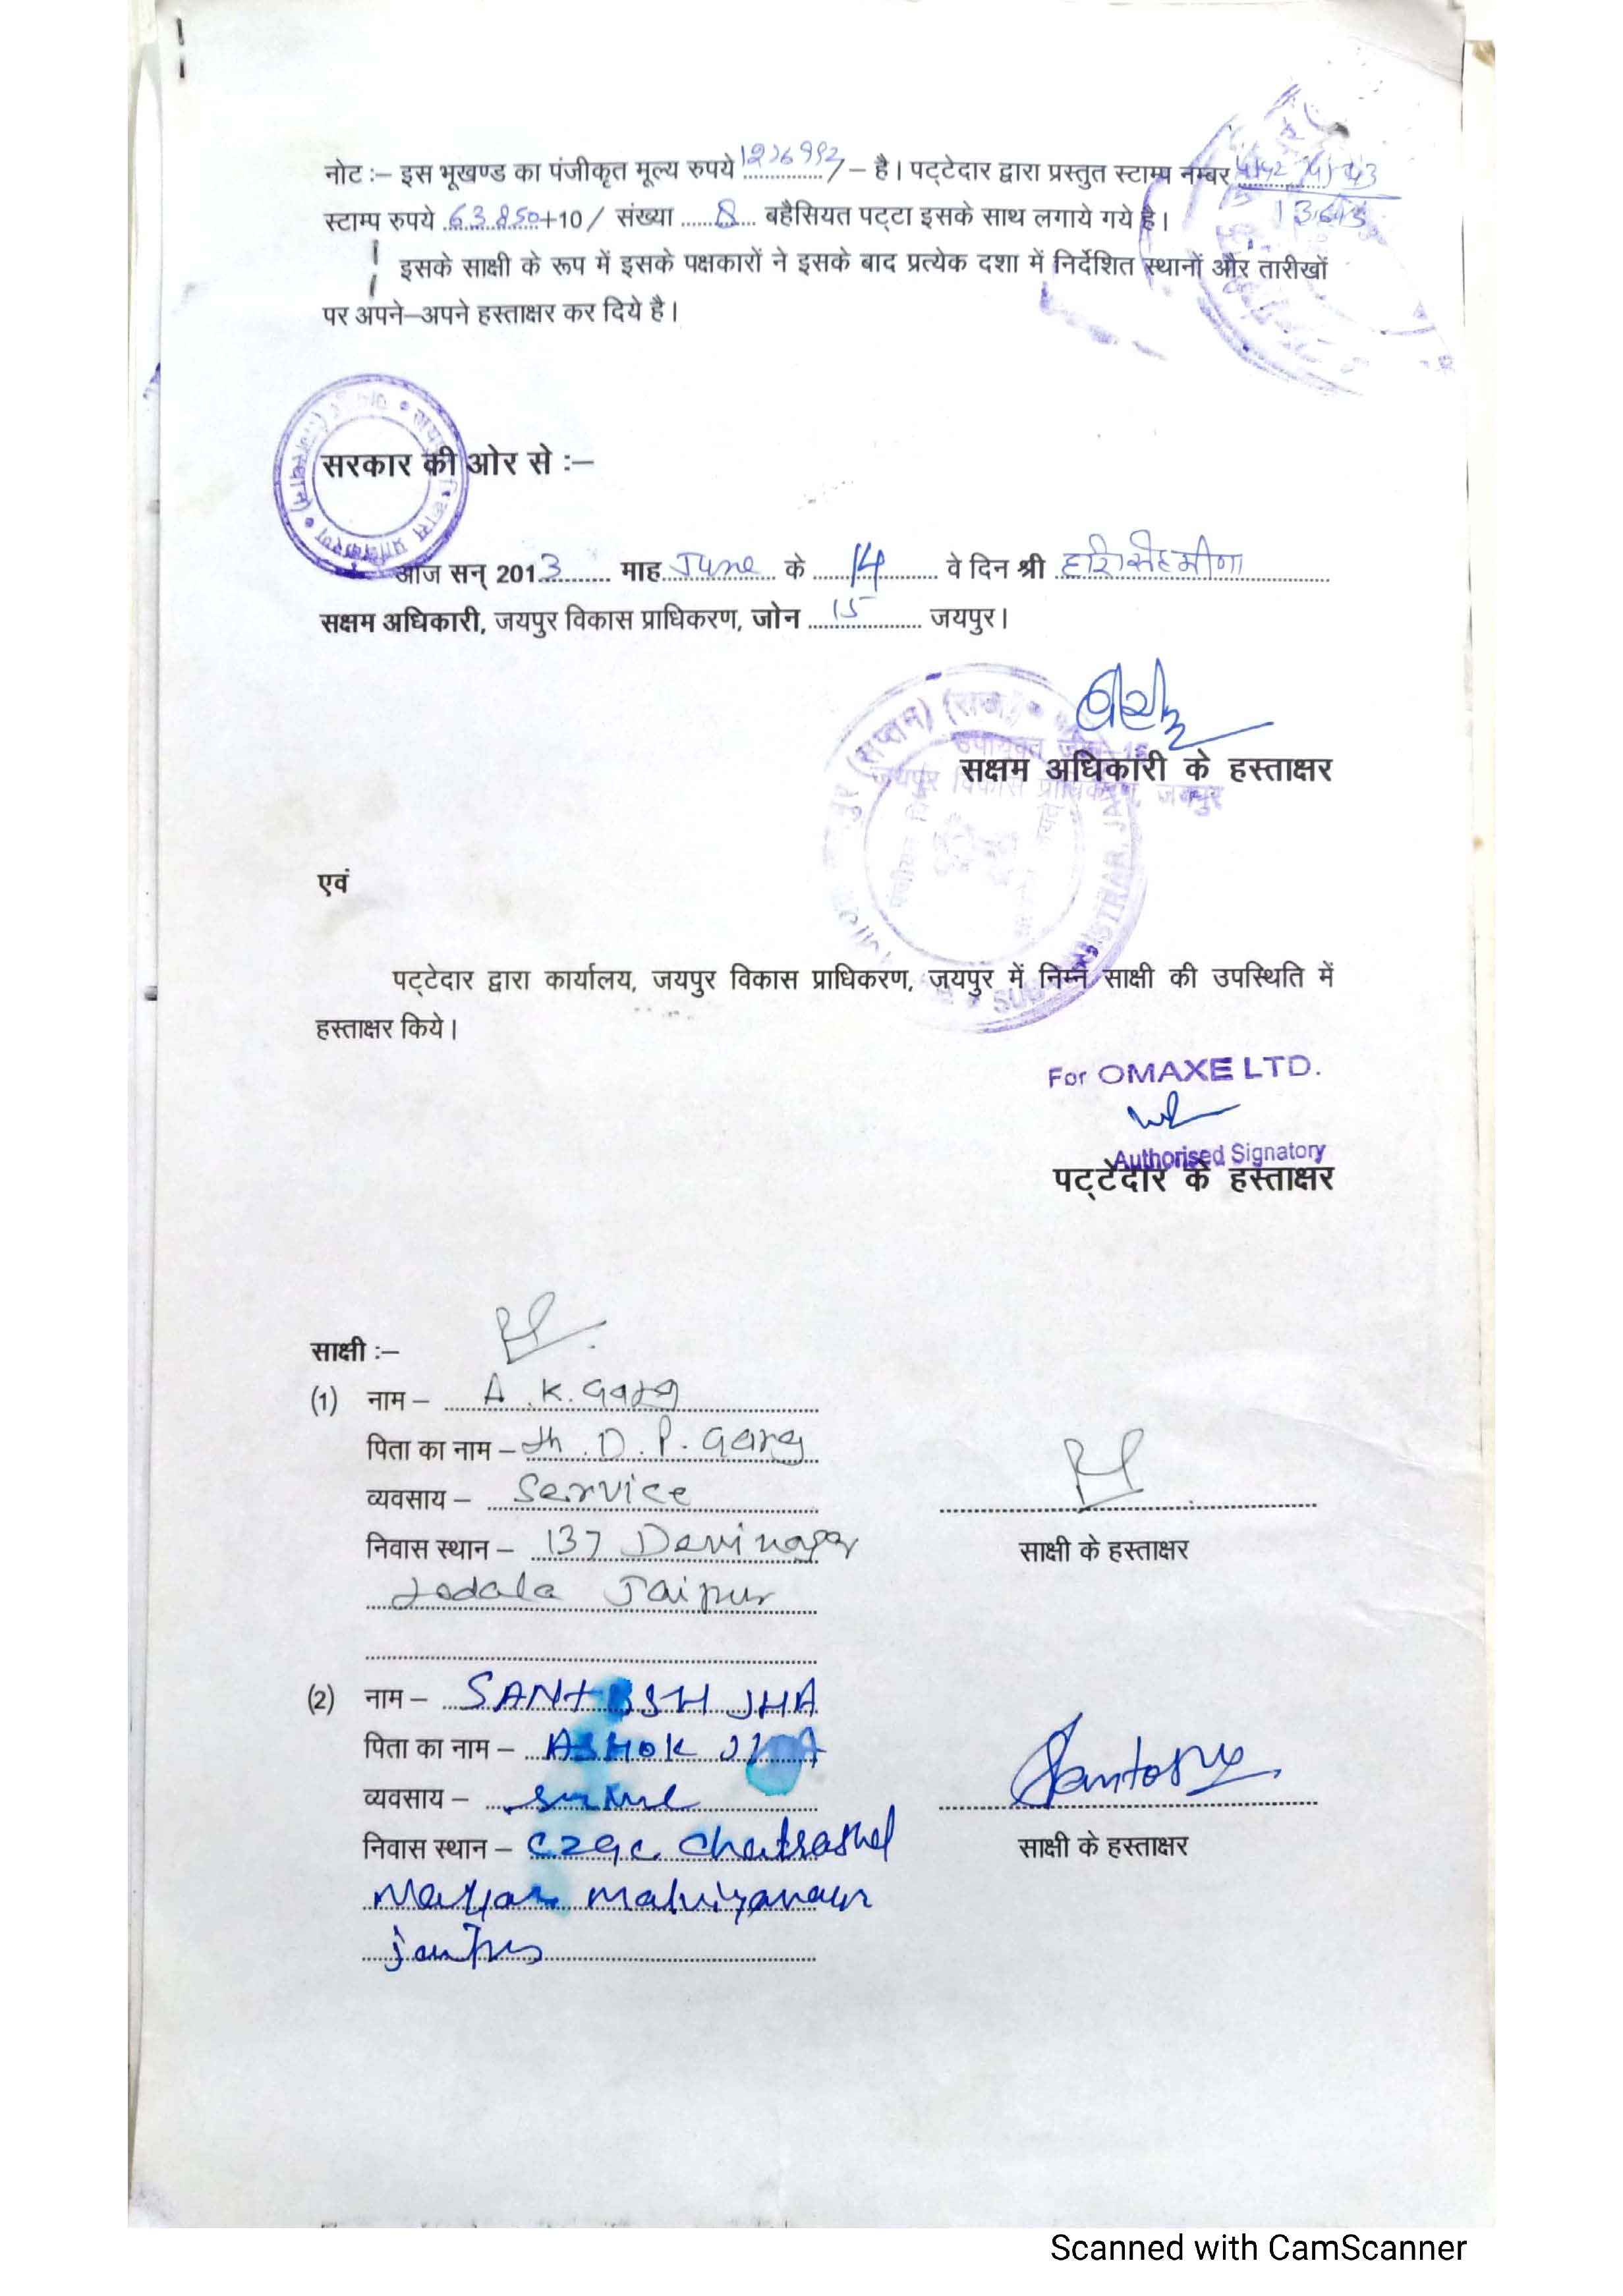 नोट :– इस भूखण्ड का पंजीकृत मूल्य रुपये 1276992/– है। पट्टेदार द्वारा प्रस्तुत स्टाम्प नम्बर
स्टाम्प रुपये 63,850+10/ संख्या 8 बहैसियत पट्टा इसके साथ लगाये गये है।
इसके साक्षी के रूप में इसके पक्षकारों ने इसके बाद प्रत्येक दशा में निर्देशित स्थानों और तारीखों
पर अपने–अपने हस्ताक्षर कर दिये है।
सरकार की ओर से :–
आज सन् 2013 माह June के 14 वे दिन श्री हरिसिंह मीणा
सक्षम अधिकारी, जयपुर विकास प्राधिकरण, जोन 15 जयपुर।
उपायुक्त जोन-15
जयपुर विकास प्राधिकरण, जयपुर
सक्षम अधिकारी के हस्ताक्षर
एवं
पट्टेदार द्वारा कार्यालय, जयपुर विकास प्राधिकरण, जयपुर में निम्न साक्षी की उपस्थिति में
हस्ताक्षर किये।
For OMAXE LTD.
Authorised Signatory
पट्टेदार के हस्ताक्षर
साक्षी :–
(1) नाम – A.K. Garg
पिता का नाम – Sh. D.P. Garg
व्यवसाय – Service
निवास स्थान – 137 Devi nagar
साक्षी के हस्ताक्षर
Sodala Jaipur
(2) नाम – SANTOSH JHA
पिता का नाम – ASHOK JHA
व्यवसाय –
Santosh
निवास स्थान –
साक्षी के हस्ताक्षर
jaipur
Scanned with CamScanner